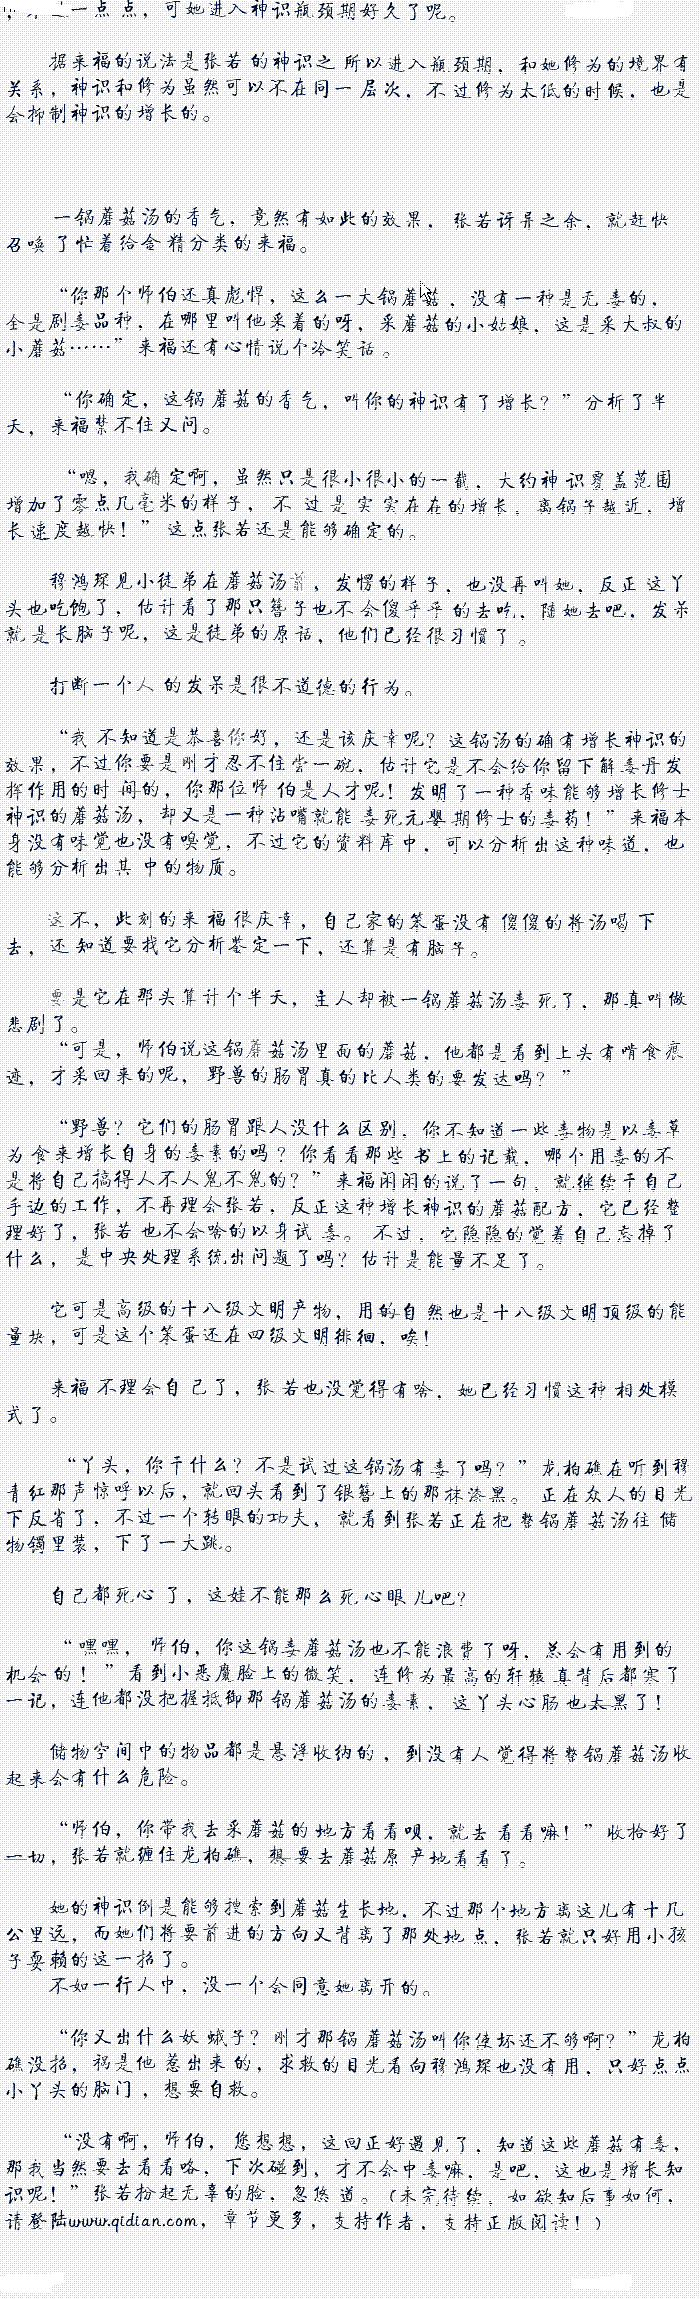 一点点，可她进入神识瓶颈期好久了呢。
据来福的说法是张若的神识之所以进入瓶颈期，和她修为的境界有
关系，神识和修为虽然可以不在同一层次，不过修为太低的时候，也是
会抑制神识的增长的。
一锅蘑菇汤的香气，竟然有如此的效果，张若讶异之余，就赶快
召唤了忙着给金精分类的来福。
“你那个师伯还真彪悍，这么一大锅蘑菇，没有一种是无毒的，
全是剧毒品种，在哪里叫他采着的呀，采蘑菇的小姑娘，这是采大叔的
小蘑菇……”来福还有心情说个冷笑话。
“你确定，这锅蘑菇的香气，叫你的神识有了增长？”分析了半
天，来福禁不住又问。
“嗯，我确定啊，虽然只是很小很小的一截，大约神识覆盖范围
增加了零点几毫米的样子，不过是实实在在的增长，离锅子越近，增
长速度越快！”这点张若还是能够确定的。
穆鸿琛见小徒弟在蘑菇汤前，发愣的样子，也没再叫她，反正这丫
头也吃饱了，估计看了那只簪子也不会傻乎乎的去吃，随她去吧，发呆
就是长脑子呢，这是徒弟的原话，他们已经很习惯了。
打断一个人的发呆是很不道德的行为。
“我不知道是恭喜你好，还是该庆幸呢？这锅汤的确有增长神识的
效果，不过你要是刚才忍不住尝一碗，估计它是不会给你留下解毒丹发
挥作用的时间的，你那位师伯是人才呢！发明了一种香味能够增长修士
神识的蘑菇汤，却又是一种沾嘴就能毒死元婴期修士的毒药！”来福本
身没有味觉也没有嗅觉，不过它的资料库中，可以分析出这种味道，也
能够分析出其中的物质。
这不，此刻的来福很庆幸，自己家的笨蛋没有傻傻的将汤喝下
去，还知道要找它分析鉴定一下，还算是有脑子。
要是它在那头算计个半天，主人却被一锅蘑菇汤毒死了，那真叫做
悲剧了。
“可是，师伯说这锅蘑菇汤里面的蘑菇，他都是看到上头有啃食痕
迹，才采回来的呢，野兽的肠胃真的比人类的要发达吗？”
“野兽？它们的肠胃跟人没什么区别，你不知道一些毒物是以毒草
为食来增长自身的毒素的吗？你看看那些书上的记载，哪个用毒的不
是将自己搞得人不人鬼不鬼的？”来福闲闲的说了一句，就继续干自己
手边的工作，不再理会张若，反正这种增长神识的蘑菇配方，它已经整
理好了，张若也不会啥的以身试毒。不过，它隐隐的觉着自己忘掉了
什么，是中央处理系统出问题了吗？估计是能量不足了。
它可是高级的十八级文明产物，用的自然也是十八级文明顶级的能
量块，可是这个笨蛋还在四级文明徘徊，唉！
来福不理会自己了，张若也没觉得有啥，她已经习惯这种相处模
式了。
“丫头，你干什么？不是试过这锅汤有毒了吗？”龙柏礁在听到穆
青红那声惊呼以后，就回头看到了银簪上的那抹漆黑。正在众人的目光
下反省了，不过一个转眼的功夫，就看到张若正在把整锅蘑菇汤往储
物镯里装，下了一大跳。
自己都死心了，这娃不能那么死心眼儿吧？
“嘿嘿，师伯，你这锅毒蘑菇汤也不能浪费了呀，总会有用到的
机会的！”看到小恶魔脸上的微笑，连修为最高的轩辕真背后都寒了
一记，连他都没把握抵御那锅蘑菇汤的毒素，这丫头心肠也太黑了！
储物空间中的物品都是悬浮收纳的，到没有人觉得将整锅蘑菇汤收
起来会有什么危险。
“师伯，你带我去采蘑菇的地方看看呗，就去看看嘛！”收拾好了
一切，张若就缠住龙柏礁，想要去蘑菇原产地看看了。
她的神识倒是能够搜索到蘑菇生长地，不过那个地方离这儿有十几
公里远，而她们将要前进的方向又背离了那处地点，张若就只好用小孩
子耍赖的这一招了。
不如一行人中，没一个会同意她离开的。
“你又出什么妖蛾子？刚才那锅蘑菇汤叫你使坏还不够啊？”龙柏
礁没招，祸是他惹出来的，求救的目光看向穆鸿琛也没有用，只好点点
小丫头的脑门，想要自救。
“没有啊，师伯，您想想，这回正好遇见了，知道这些蘑菇有毒，
那我当然要去看看咯，下次碰到，才不会中毒嘛，是吧，这也是增长知
识呢！”张若扮起无辜的脸，忽悠道。（未完待续，如欲知后事如何，
请登陆www.qidian.com，章节更多，支持作者，支持正版阅读！）